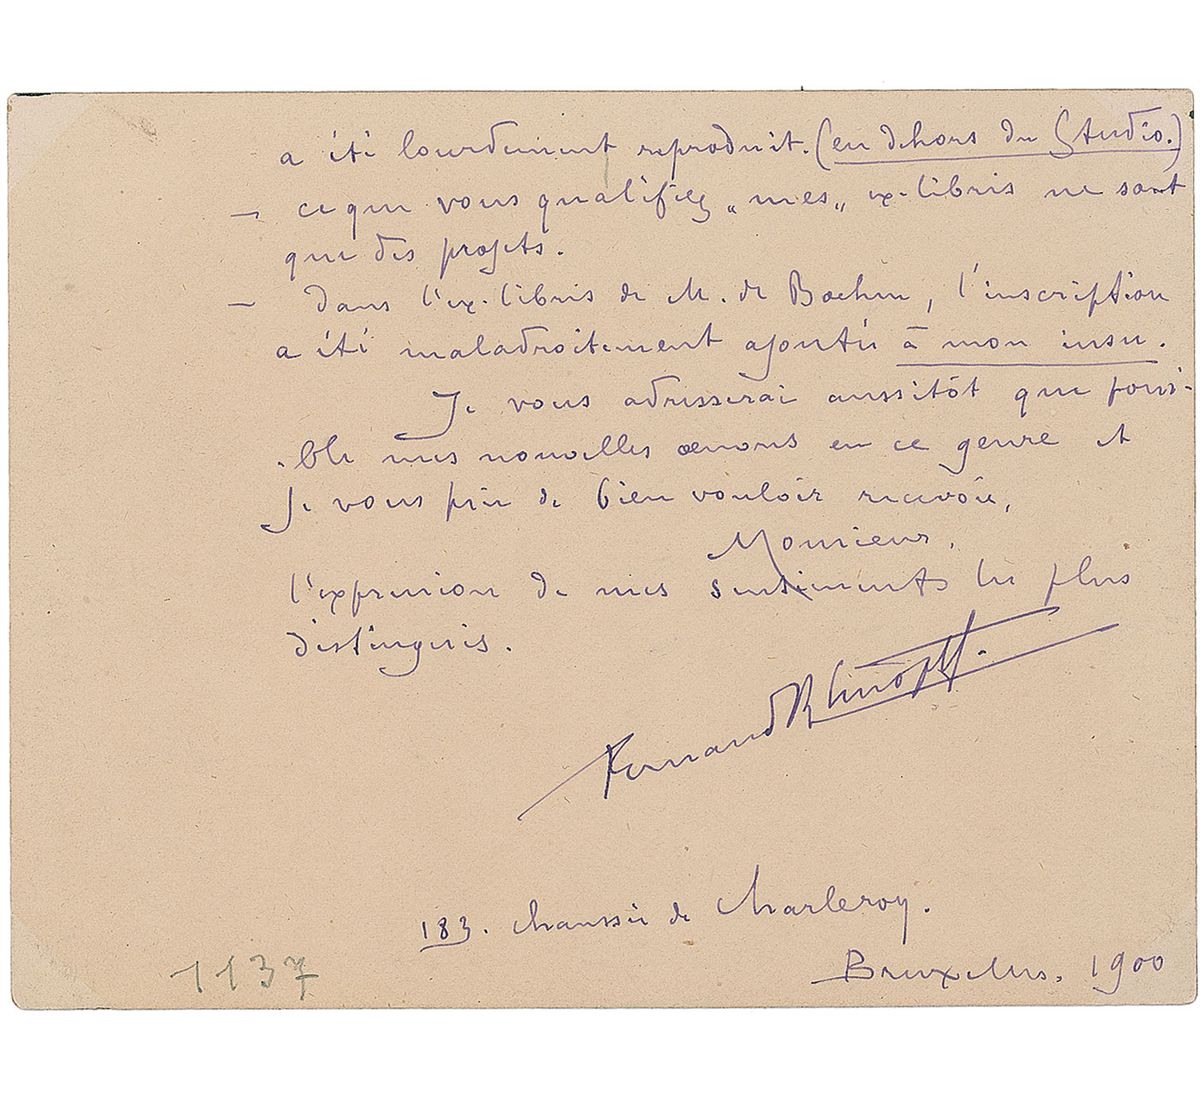 a été lourdement reproduit. (en dehors du Studio.)
— ce que vous qualifiez „mes„ ex-libris ne sont
que des projets.
— Dans l'ex-libris de M. de Baehm, l'inscription
a été maladroitement ajoutée à mon insu.
Je vous adresserai aussitôt que possi-
-ble mes nouvelles œuvres en ce genre et
Je vous prie de bien vouloir recevoir,
Monsieur,
l'expression de mes sentiments les plus
distingués.
Fernand Khnopff.
183. chaussée de Charleroy.
Bruxelles. 1900
1137